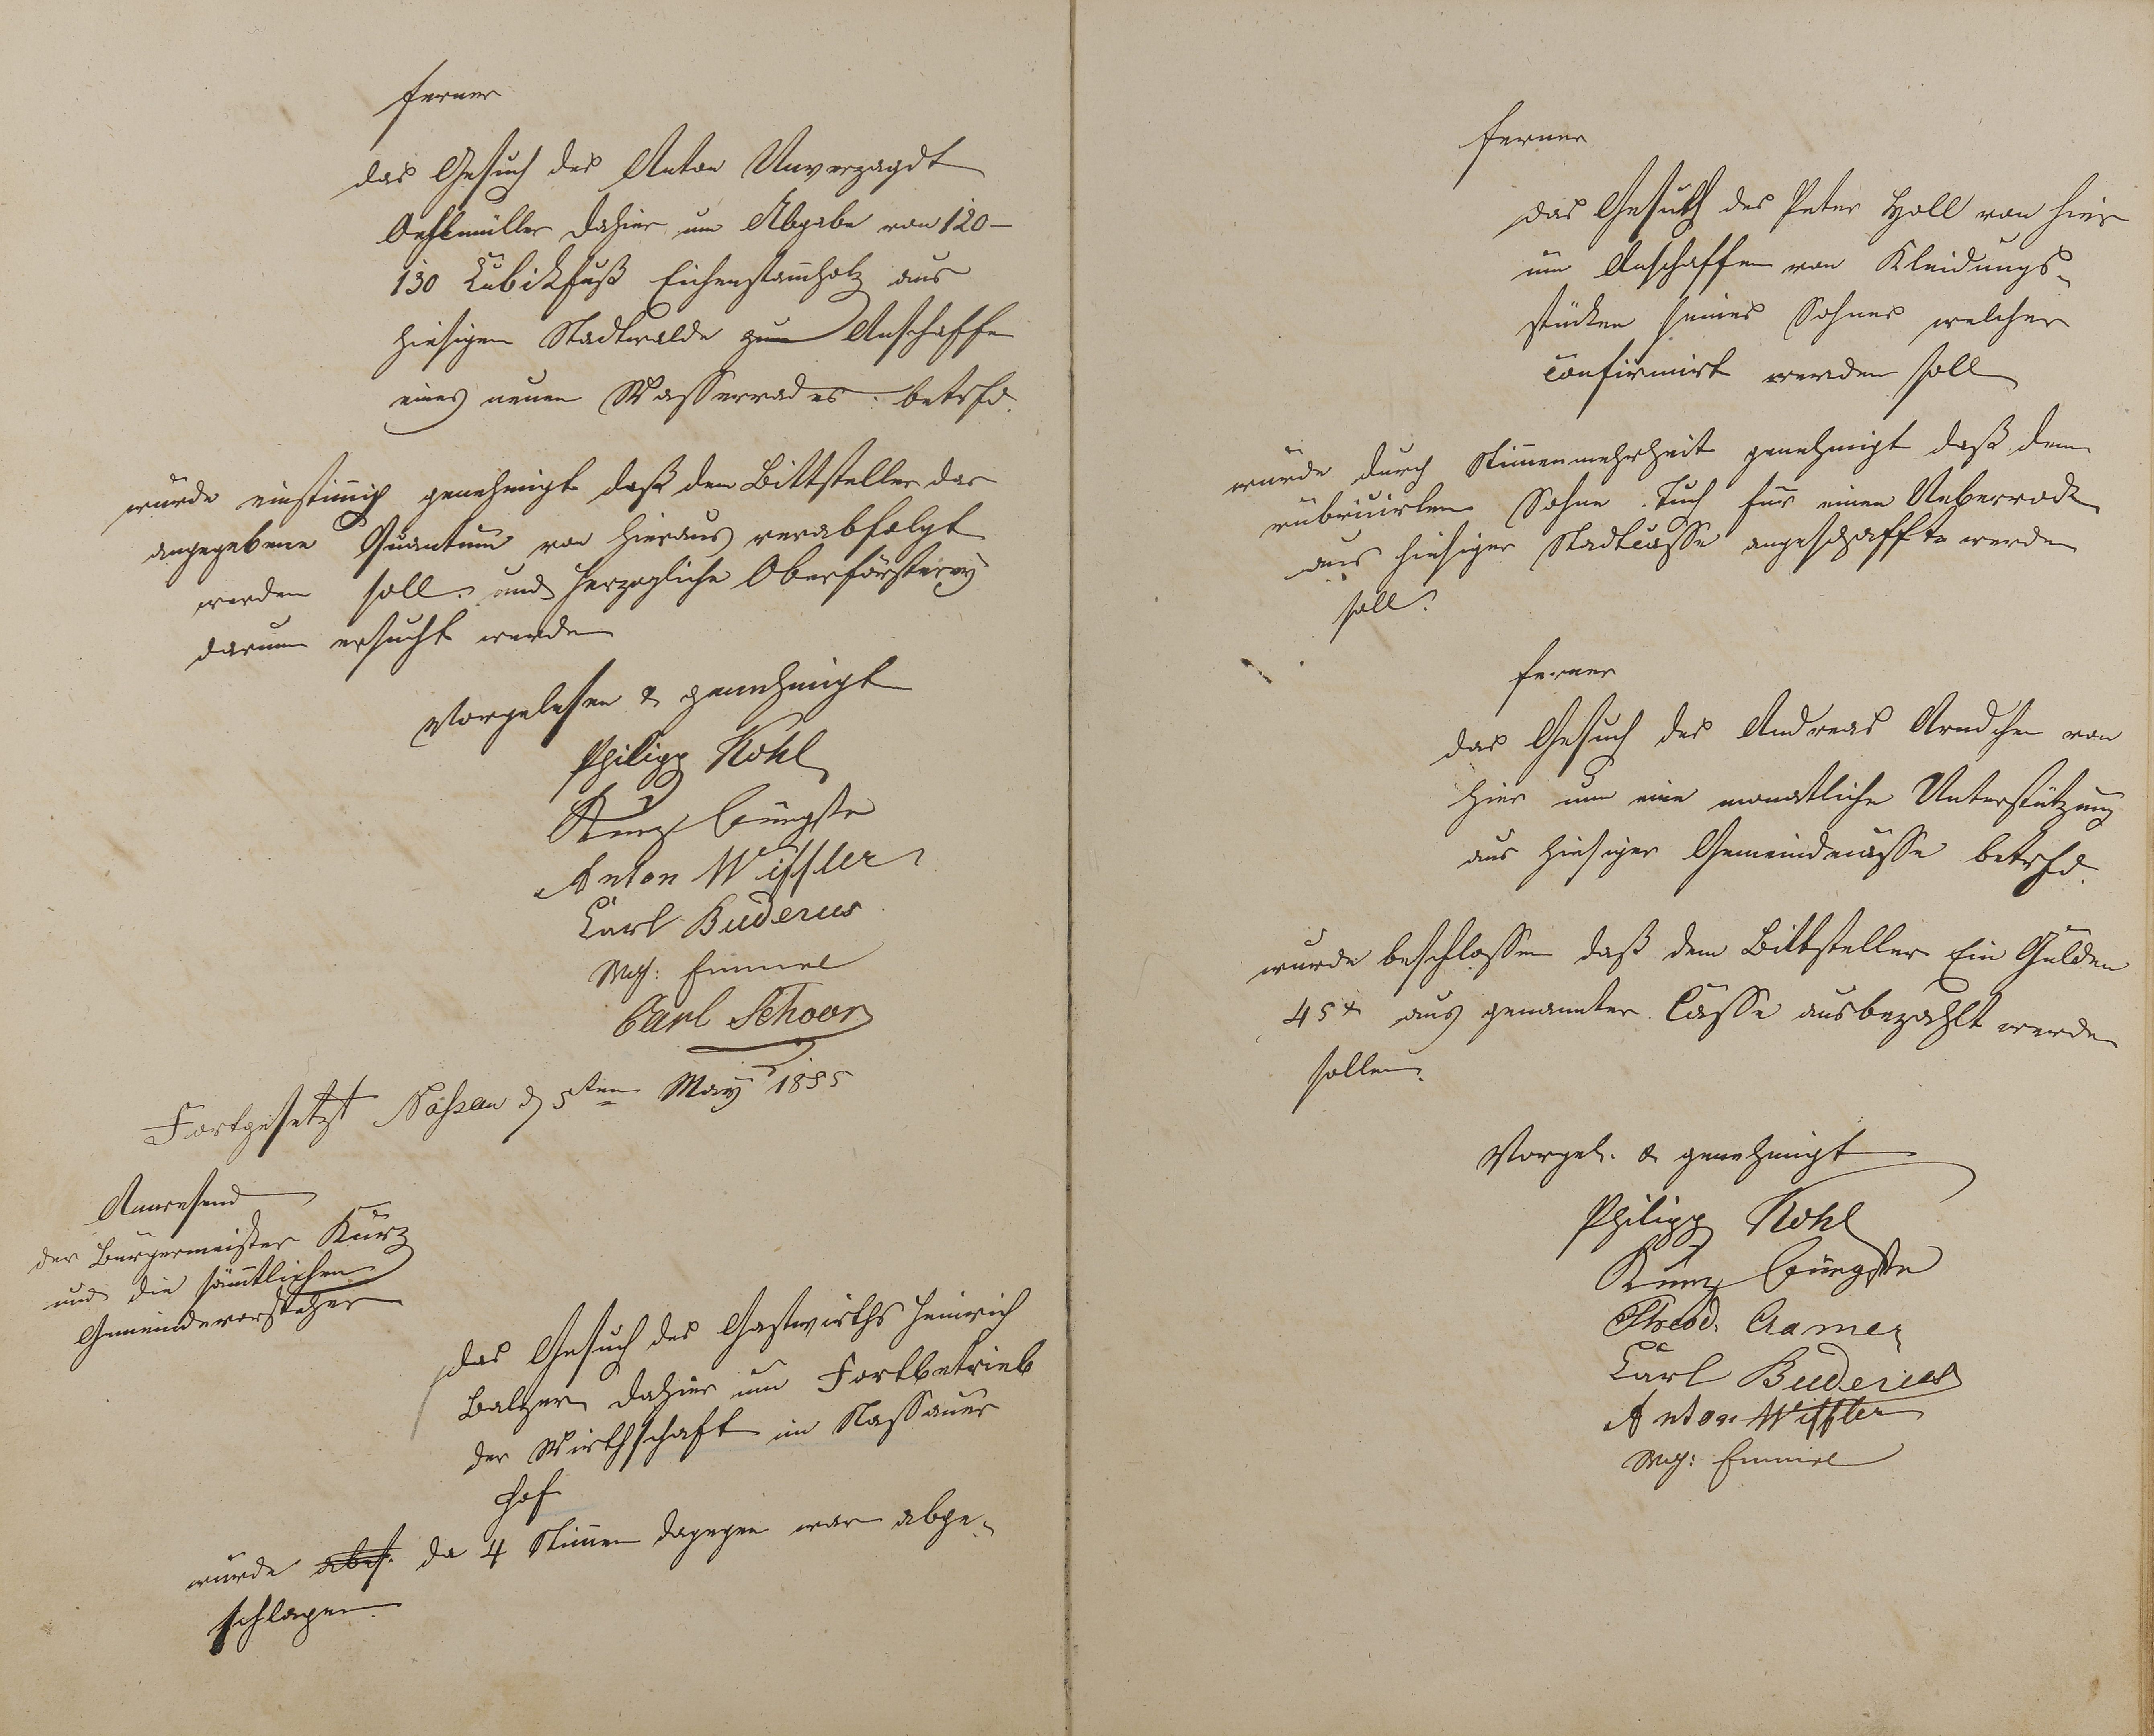 ferner
das Gesuch des Anton Unverzagdt
Oehlmüller dahier um Abgabe von 120–
130 Cubikfuß Eichenstam̅holz aus
hiesigem Stadtwalde zum Anschaffen
eines neuen Wasserrades betrfd.
wurde einstim̅ig genehmigt daß dem Bittsteller das
angegebene Quantum von hieraus verabfolgt
werden soll und Herzogliche Oberförsterey
darum ersucht werden
Vorgelesen & genehmigt
Philipp Kohl
Kurz Bürgstr
Anton Wissler
Carl Buderus
Wh: Emmel
Carl Schoor
Fortgesetzt Nassau d 5ten May 1855
Anwesend
der Bürgermeister Kurz
und die säm̅tlichen
Gemeindevorsteher
das Gesuch des Gastwirths Heinrich
Balzer dahier um Fortbetrieb
der Wirthschaft im Nassauer
Hof
wurde da 4 Stim̅en dagegen waren abge-
schlagen.
ferner
das Gesuch des Peter Holl von hier
um Anschaffen von Kleidungs-
stücken seines Sohnes welcher
confirmirt werden soll
wurde durch Stim̅enmehrheit genehmigt daß dem
rubricirten Sohne Tuch für einen Ueberrock
aus hiesiger Stadtcasse angeschafft werden
soll.
ferner
das Gesuch des Andreas Arndchen von
hier um eine monatliche Unterstützung
aus hiesiger Gemeindecasse betrfd.
wurde beschlossen daß dem Bittsteller Ein Gulden
45 x aus genannter Casse ausbezahlt werden
sollen.
Vorgel. & genehmigt
Philipp Kohl
Kurz Bürgstr
Theod. Cramer
Carl Buderus
Anton Wissler
Wh: Emmel